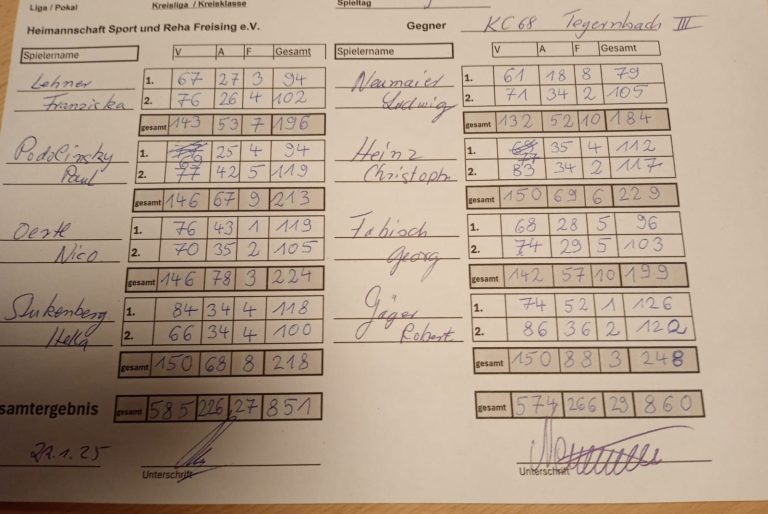 Liga / Pokal Kreisliga / Kreisklasse Spieltag
Heimannschaft Sport und Reha Freising e.V. Gegner KC68 Tegernbach III
Spielername V A F Gesamt Spielername V A F Gesamt
Lehner 1. 67 27 3 94 Neumaier 1. 61 18 8 79
Franziska 2. 76 26 4 102 Ludwig 2. 71 34 2 105
gesamt 143 53 7 196 gesamt 132 52 10 184
Podolinsky 1. 69 25 4 94 Heinz 1. 77 35 4 112
Paul 2. 77 42 5 119 Christoph 2. 83 34 2 117
gesamt 146 67 9 213 gesamt 150 69 6 229
Oertl 1. 76 43 1 119 Fabisch 1. 68 28 5 96
Nico 2. 70 35 2 105 Georg 2. 74 29 5 103
gesamt 146 78 3 224 gesamt 142 57 10 199
Stukenberg 1. 84 34 4 118 Gäger 1. 74 52 1 126
Hella 2. 66 34 4 100 Robert 2. 86 36 2 122
gesamt 150 68 8 218 gesamt 150 88 3 248
samtergebnis gesamt 585 226 27 851 gesamt 574 266 29 860
29.1.25
Unterschrift Unterschrift